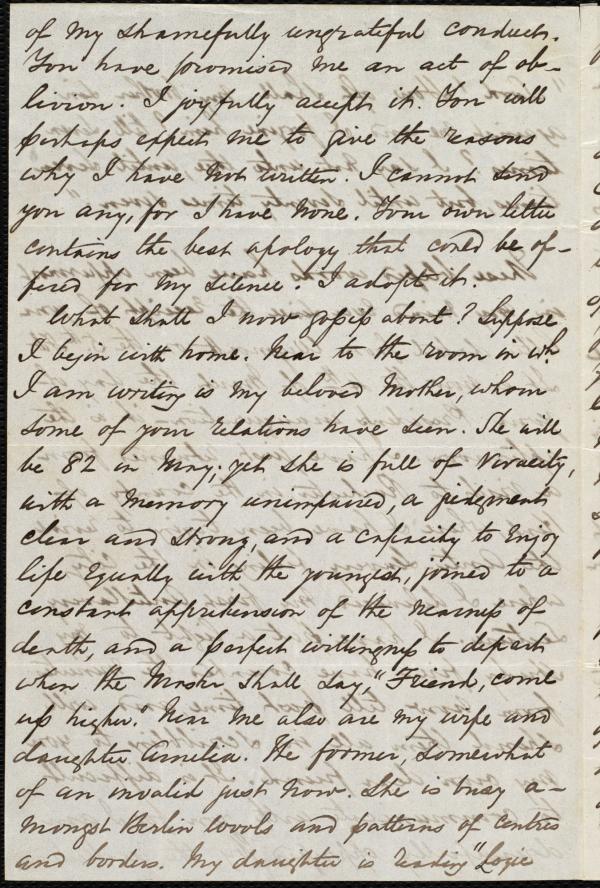 of my shamefully ungrateful conduct.
You have promised me an act of ob-
livion. I joyfully accept it. You will
perhaps expect me to give the reasons
why I have not written. I cannot send
you any, for I have none. Your own letter
contains the best apology that could be of-
fered for my silence. I adopt it.
What shall I now gossip about? Suppose
I begin with home. Near to the room in wh.
I am writing is my beloved Mother, whom
some of your relations have seen. She will
be 82 in May; yet she is full of vivacity,
with a memory unimpaired, a judgment
clear and strong, and a capacity to enjoy
life equally with the youngest, joined to a
constant apprehension of the nearness of
death, and a perfect willingness to depart
when the Master shall say, "Friend, come
up higher." Near me also are my wife and
daughter Amelia. The former, somewhat
of an invalid just now. She is busy a-
mongst Berlin wools and patterns of centres
and borders. My daughter is reading "Logic